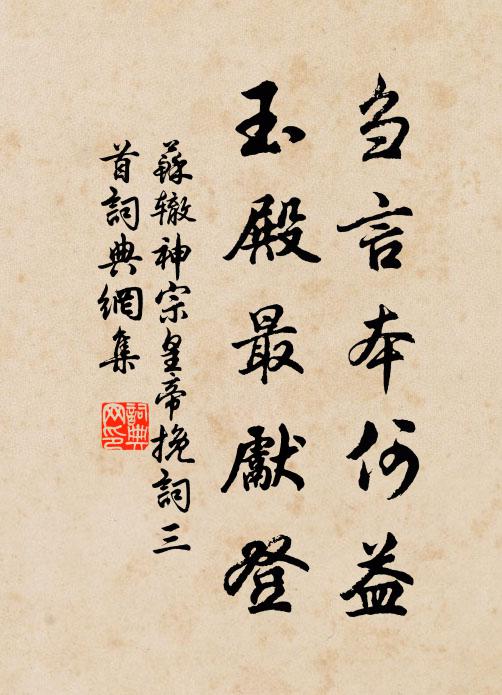 刍言本何益
玉殿最獻登
蘇辙神宗皇帝挽詞三
首詞典網集
詞典
网印